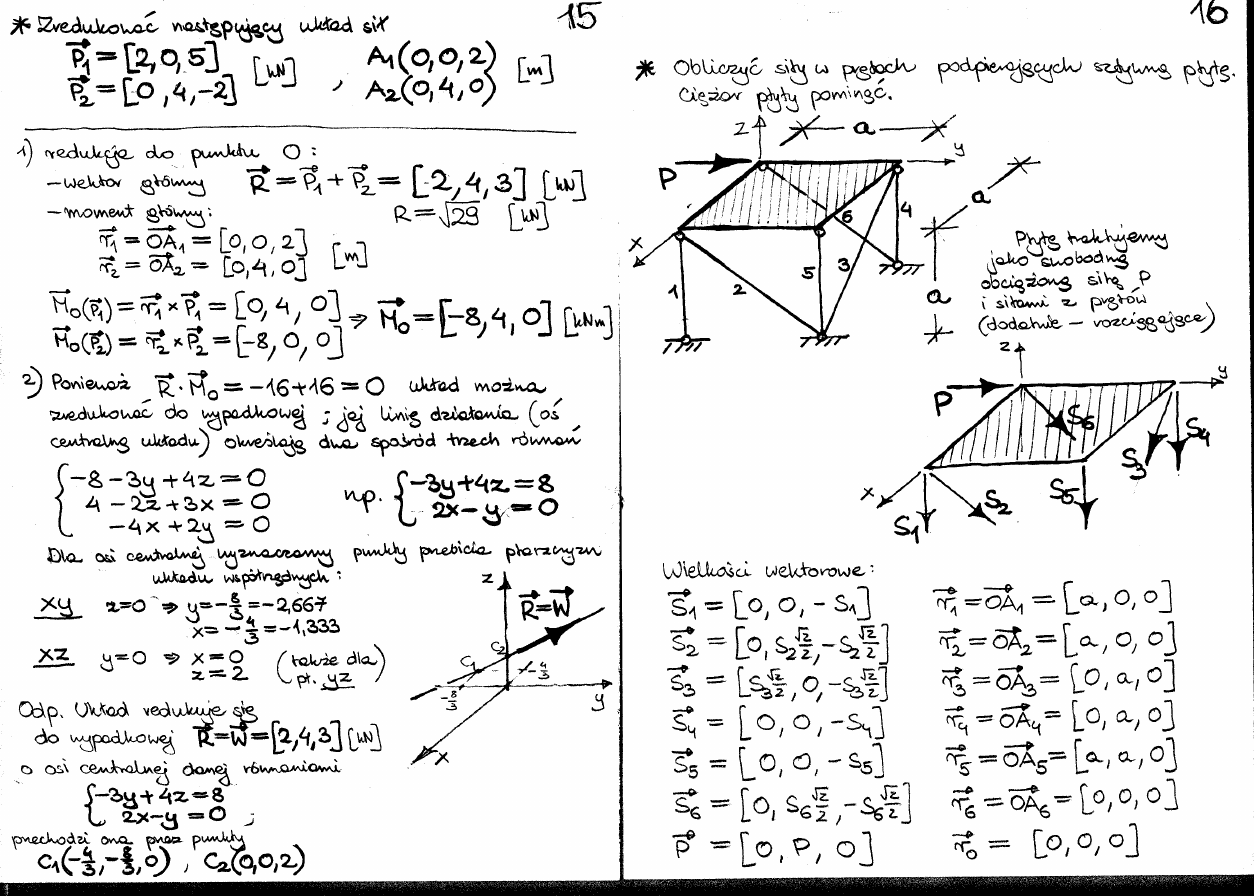 15
* Zredukować następujący układ sił
P⃗₁ = [2, 0, 5] [kN] , A₁(0,0,2) [m]
P⃗₂ = [0, 4, -2] A₂(0,4,0)
1) redukcja do punktu O:
- wektor główny R⃗ = P⃗₁ + P⃗₂ = [2, 4, 3] [kN]
- moment główny: R = √29 [kN]
r⃗₁ = OA⃗₁ = [0, 0, 2] [m]
r⃗₂ = OA⃗₂ = [0, 4, 0]
M⃗₀(P⃗₁) = r⃗₁ × P⃗₁ = [0, 4, 0] ⇒ M⃗₀ = [-8, 4, 0] [kNm]
M⃗₀(P⃗₂) = r⃗₂ × P⃗₂ = [-8, 0, 0]
2) Ponieważ R⃗ · M⃗₀ = -16 + 16 = 0 układ można
zredukować do wypadkowej ; jej linię działania (oś
centralną układu) określają dwa spośród trzech równań
{ -8 - 3y + 4z = 0
4 - 2z + 3x = 0
-4x + 2y = 0
np. { -3y + 4z = 8
2x - y = 0
Dla osi centralnej wyznaczamy punkty przebicia płaszczyzn
układu współrzędnych :
xy z=0 ⇒ y = -8/3 = -2,667
x = -4/3 = -1,333
xz y=0 ⇒ x=0 (także dla
z=2 pł. yz)
z
R⃗ = W⃗
C₂
C₁
-4/3
-8/3
y
x
Odp. Układ redukuje się
do wypadkowej R⃗ = W⃗ = [2, 4, 3] [kN]
o osi centralnej danej równaniami
{ -3y + 4z = 8
2x - y = 0 ;
przechodzi ona przez punkty
C₁(-4/3, -8/3, 0) , C₂(0,0,2)
16
* Obliczyć siły w prętach podpierających sztywną płytę.
Ciężar płyty pominąć.
z
a
y
P
a
6
4
x
5
3
1
2
a
Płytę traktujemy
jako swobodną
obciążoną siłą P
i siłami z prętów
(dodatnie - rozciągające)
z
y
P
S₆
S₄
S₃
x
S₅
S₂
S₁
Wielkości wektorowe :
S⃗₁ = [0, 0, -S₁] r⃗₁ = OA⃗₁ = [a, 0, 0]
S⃗₂ = [0, S₂ √2/2, -S₂ √2/2] r⃗₂ = OA⃗₂ = [a, 0, 0]
S⃗₃ = [S₃ √2/2, 0, -S₃ √2/2] r⃗₃ = OA⃗₃ = [0, a, 0]
S⃗₄ = [0, 0, -S₄] r⃗₄ = OA⃗₄ = [0, a, 0]
S⃗₅ = [0, 0, -S₅] r⃗₅ = OA⃗₅ = [a, a, 0]
S⃗₆ = [0, S₆ √2/2, -S₆ √2/2] r⃗₆ = OA⃗₆ = [0, 0, 0]
P⃗ = [0, P, 0] r⃗₀ = [0, 0, 0]